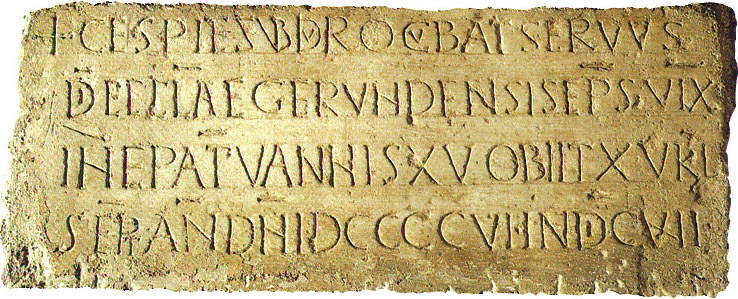 + CESPITE SVB DVRO CVBAT SERVVS
DEI ECLIAE GERVNDENSIS EPS VIX
IN EPATV ANNIS XV OBIIT XV KL
SEP AN DNI DCCCCVI IND